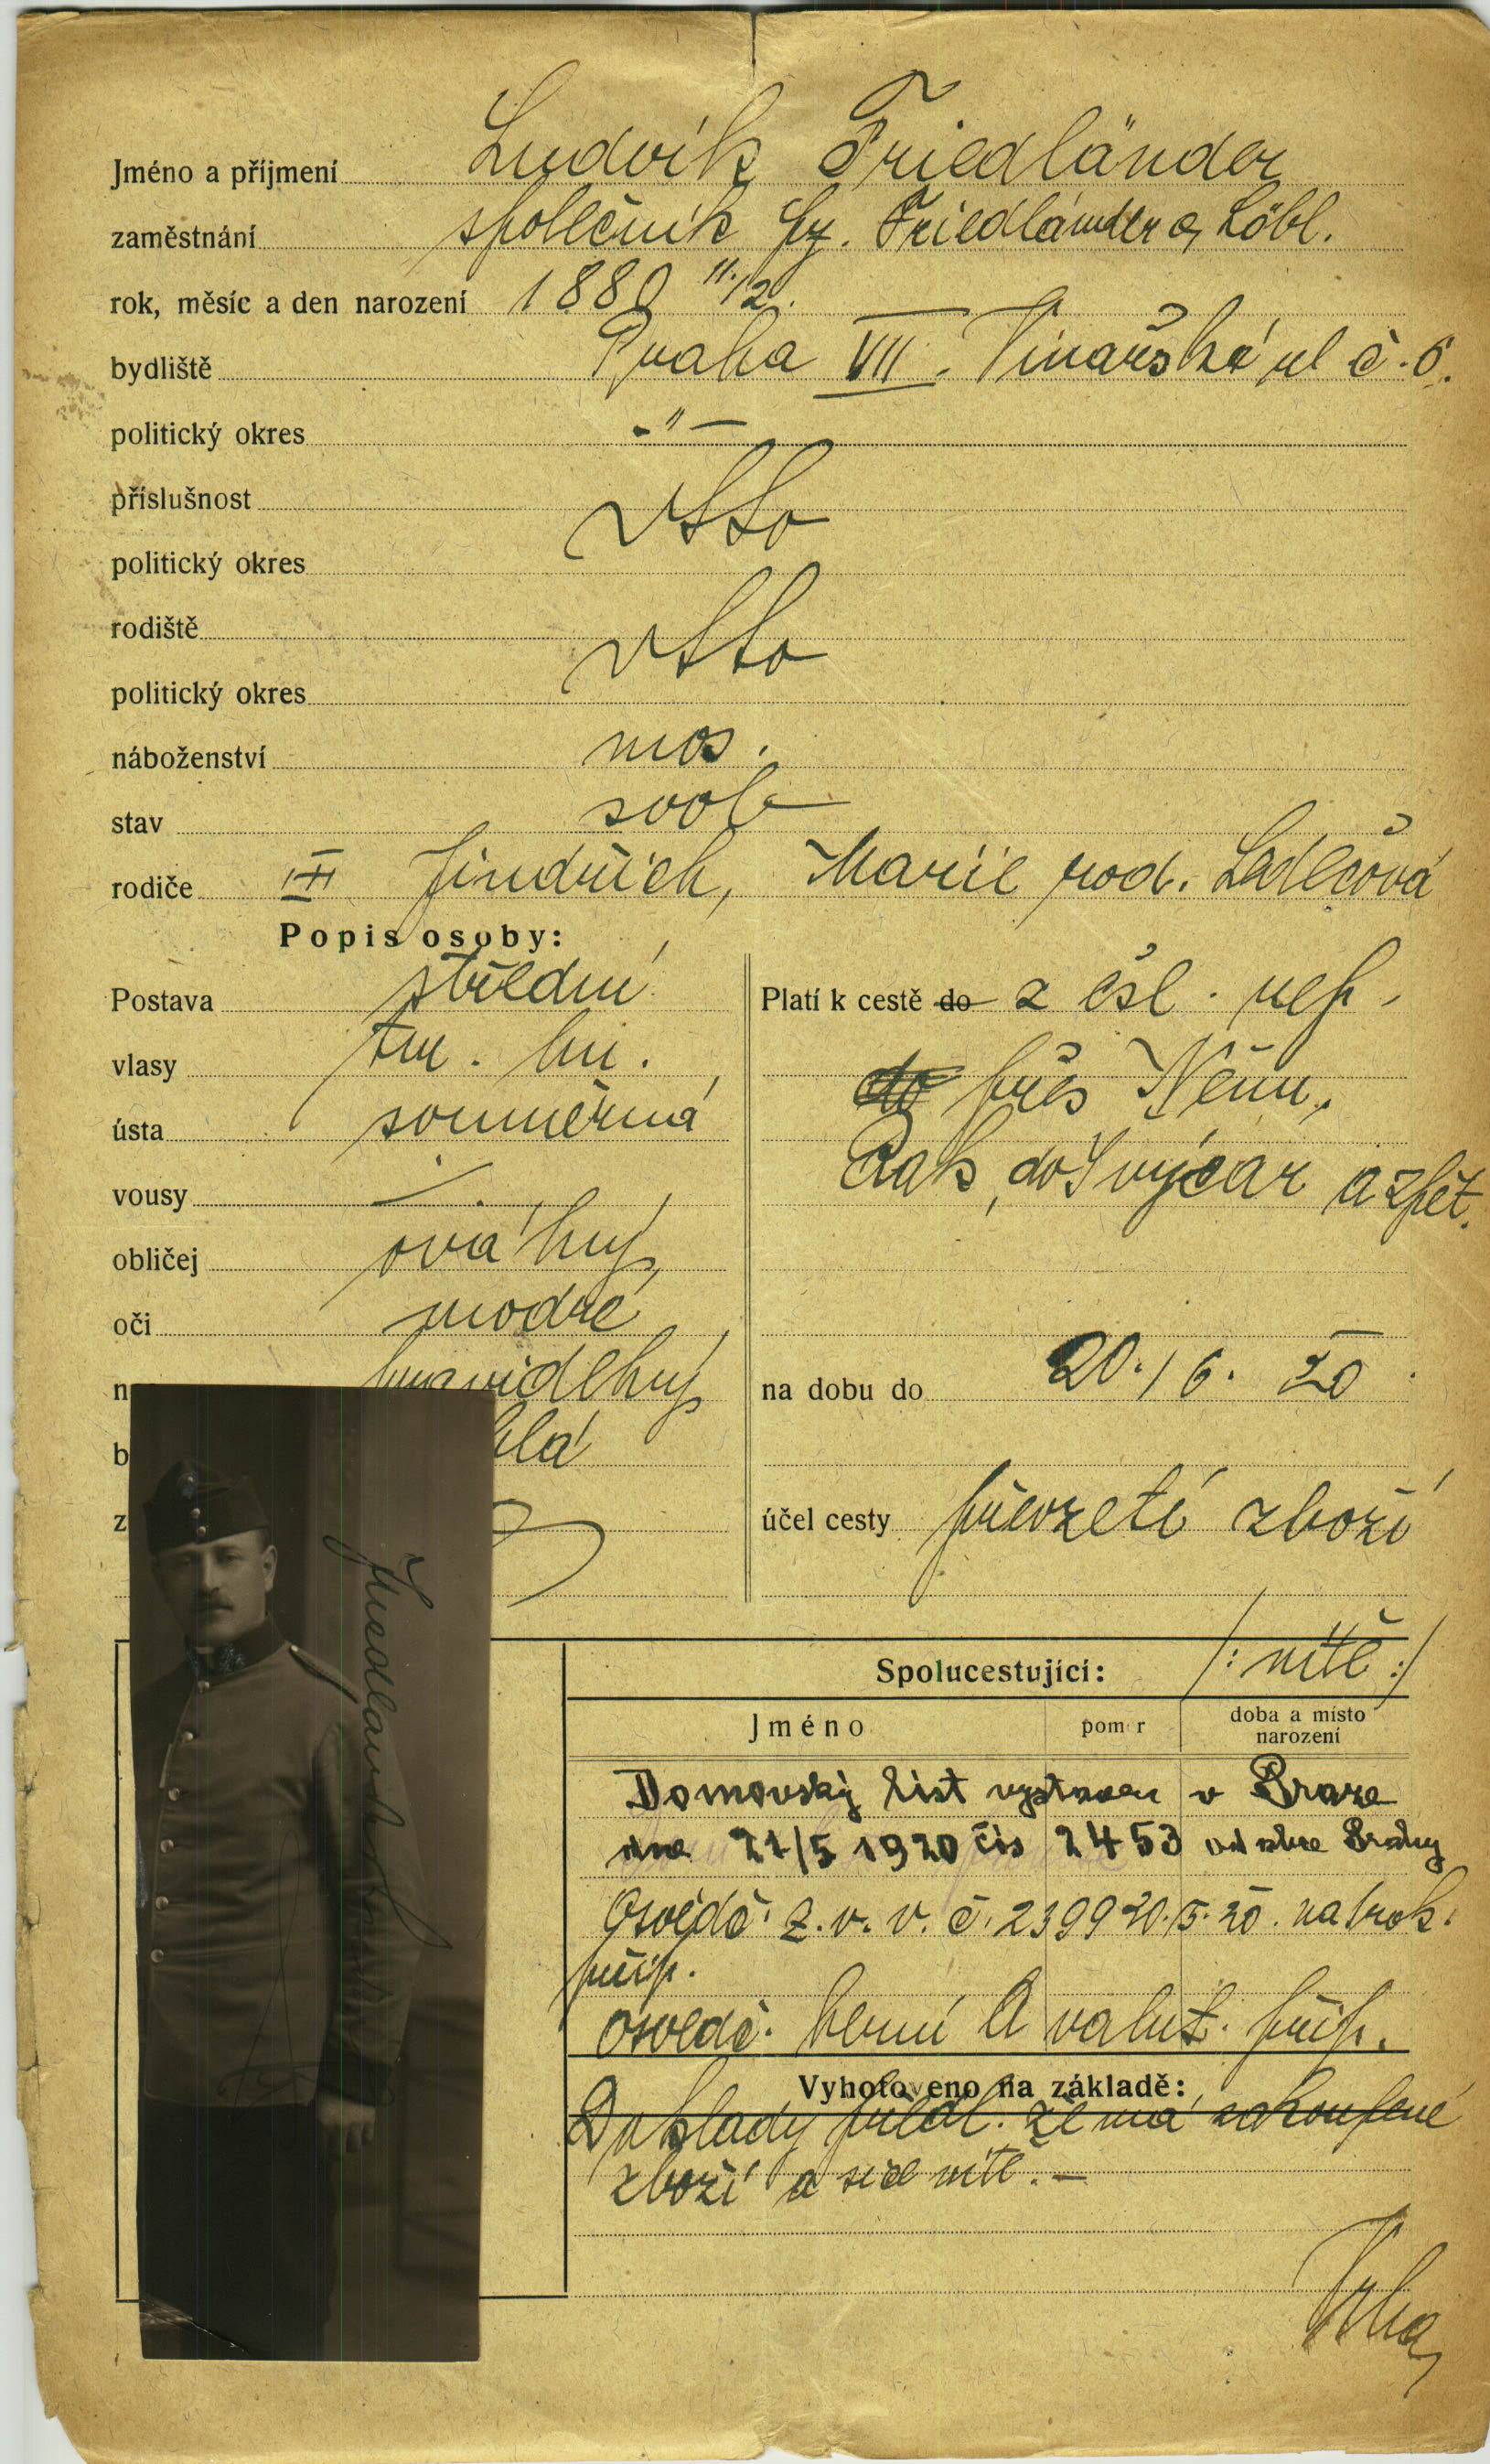 Jméno a příjmení Ludvík Friedländer
zaměstnání společník fy. Friedländer a Löbl.
rok, měsíc a den narození 1880 11./12.
bydliště Praha VII. Vinařská ul č. 6.
politický okres -"-
příslušnost
politický okres
rodiště
politický okres
náboženství mos.
stav svob
rodiče Jindřich, Marie rod. Ladečová
Popis osoby:
Postava střední
vlasy tm. hn.
ústa souměrná
vousy
obličej oválný
oči modré
n pravidelný
b hlá
z
Platí k cestě do z čsl. rep.
do přes Něm.
Rak. do Švýcar a zpět.
na dobu do 20./6. 20.
účel cesty převzetí zboží
/: nitě :/
Spolucestující:
Jméno pom r doba a místo narození
Domovský list vystaven v Praze
dne 21/5 1920 čís 2453 od obce Prahy
Osvědč. z. v. v. č. 2399 20./5. 20. na 1 rok.
přip.
osvědč. berní a valut. přip.
Vyhotoveno na základě:
Doklady předl. že má zakoupené
zboží a sice nitě. —
Friedländer